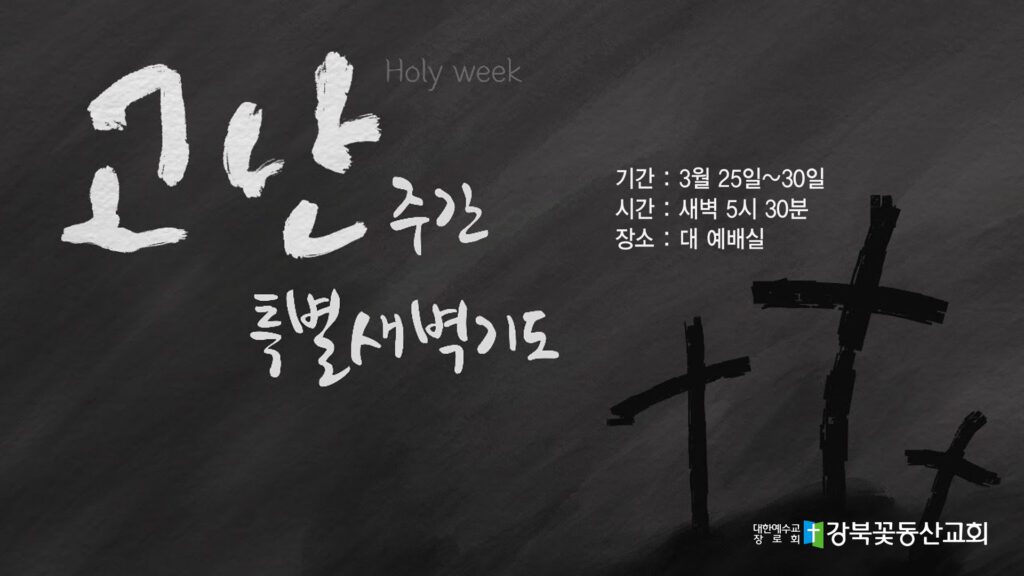 Holy week
고난
주간
특별새벽기도
기간 : 3월 25일~30일
시간 : 새벽 5시 30분
장소 : 대 예배실
대한예수교
장로회
강북꽃동산교회